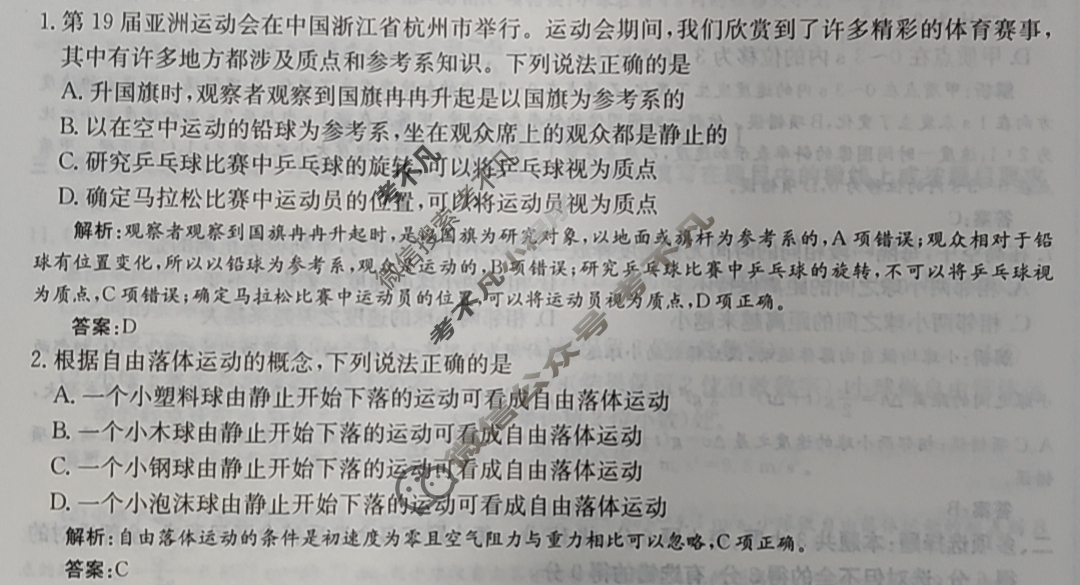 1. 第 19 届亚洲运动会在中国浙江省杭州市举行。运动会期间,我们欣赏到了许多精彩的体育赛事,
其中有许多地方都涉及质点和参考系知识。下列说法正确的是
A. 升国旗时,观察者观察到国旗冉冉升起是以国旗为参考系的
B. 以在空中运动的铅球为参考系,坐在观众席上的观众都是静止的
C. 研究乒乓球比赛中乒乓球的旋转,可以将乒乓球视为质点
D. 确定马拉松比赛中运动员的位置,可以将运动员视为质点
解析:观察者观察到国旗冉冉升起时,是以国旗为研究对象,以地面或旗杆为参考系的,A 项错误;观众相对于铅
球有位置变化,所以以铅球为参考系,观众是运动的,B项错误;研究乒乓球比赛中乒乓球的旋转,不可以将乒乓球视
为质点,C 项错误;确定马拉松比赛中运动员的位置,可以将运动员视为质点,D 项正确。
答案:D
2. 根据自由落体运动的概念,下列说法正确的是
A. 一个小塑料球由静止开始下落的运动可看成自由落体运动
B. 一个小木球由静止开始下落的运动可看成自由落体运动
C. 一个小钢球由静止开始下落的运动可看成自由落体运动
D. 一个小泡沫球由静止开始下落的运动可看成自由落体运动
解析:自由落体运动的条件是初速度为零且空气阻力与重力相比可以忽略,C 项正确。
答案:C
考不凡
微信搜索
考不凡
小程序
考不凡
微信公众号